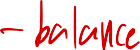 - balance